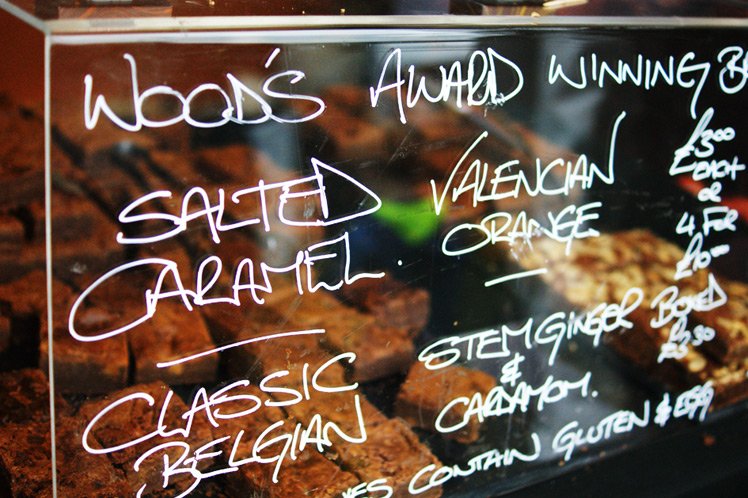 WOOD'S AWARD WINNING
SALTED
CARAMEL.
CLASSIC
BELGIAN
VALENCIAN
ORANGE
STEM GINGER
&
CARDAMOM.
£3.00
EACH
OR
4 FOR
£10.00
BOXED
CONTAIN GLUTEN & EGG